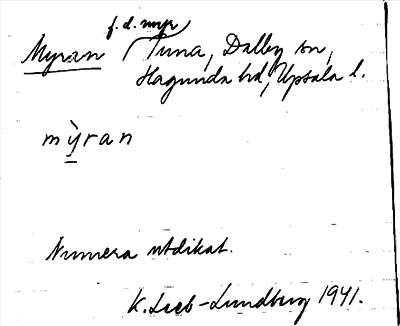 f. d. myr
Myran Tuna, Dalby sn,
Hagunda hd, Upsala l.
mỳran
Numera utdikat.
K. Lieb-Lundberg 1941.